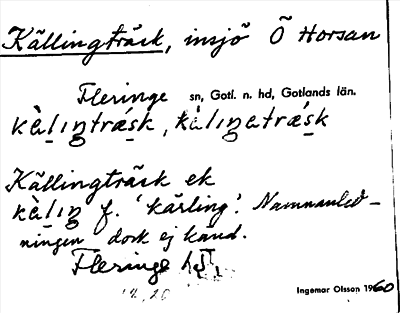 Källingträsk, insjö Ö Horsan
Fleringe sn, Gotl. n. hd, Gotlands län.
kèlıŋtrǽsk, kèlıŋatrǽsk
Källingträsk ek
kèlıŋ f. 'kärling'. Namnanled-
ningen dock ej känd.
Fleringe
Ingemar Olsson 1960